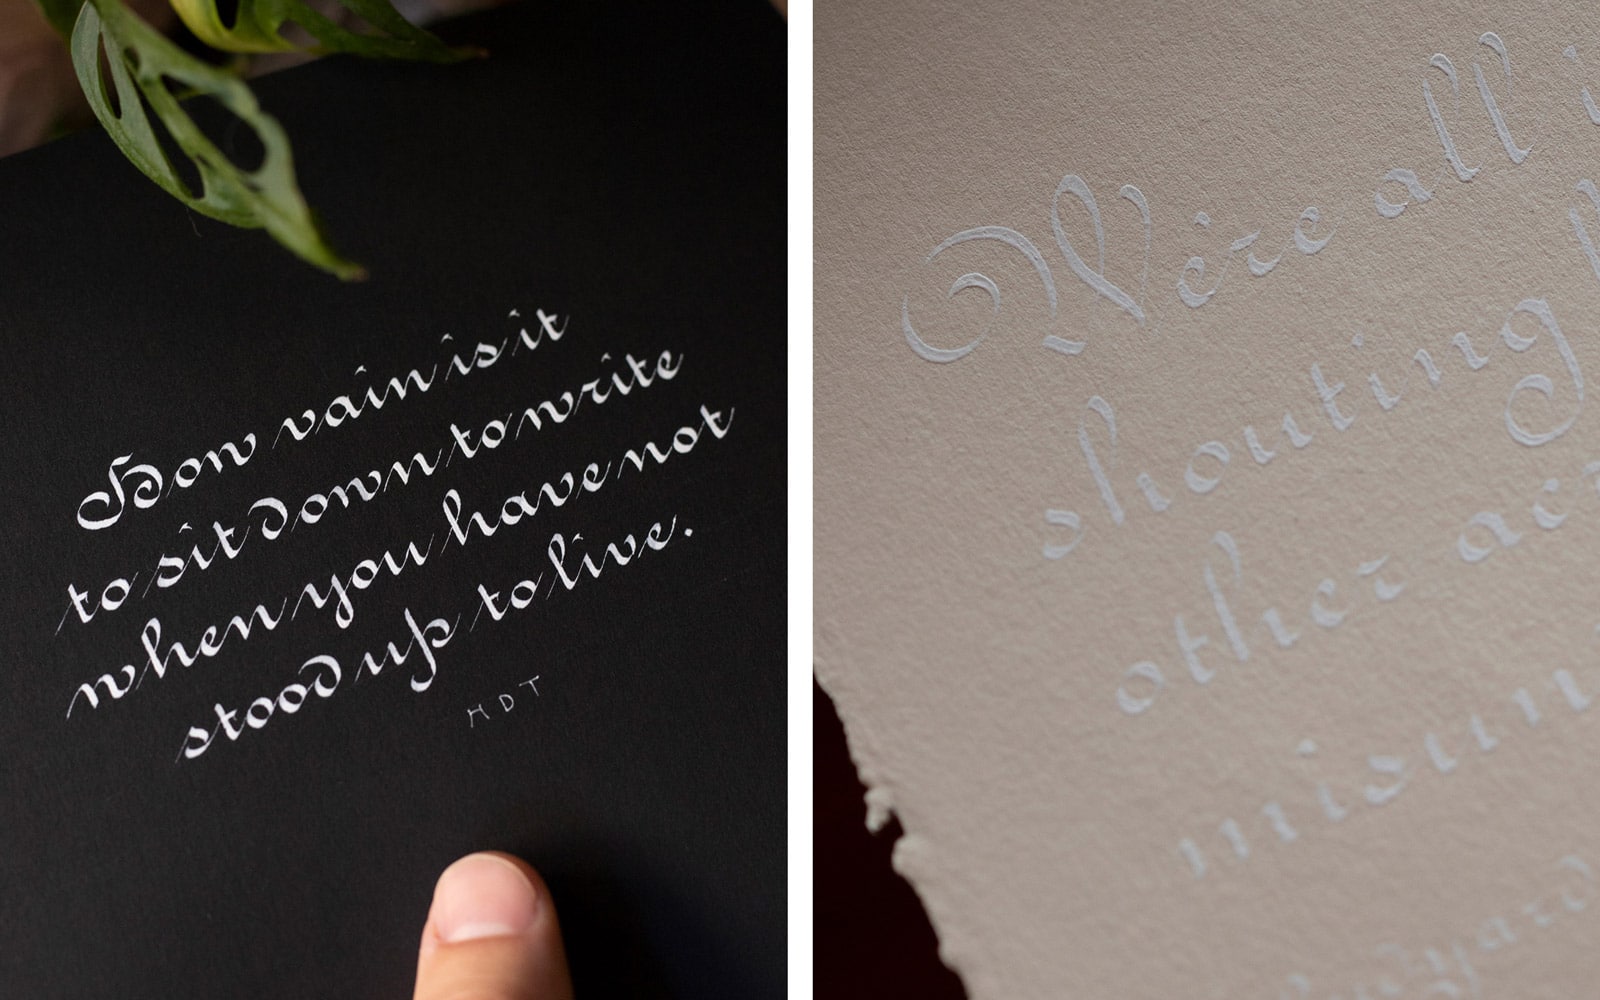 How vain is it
to sit down to write
when you have not
stood up to live.
HDT
We're all
shouting
other